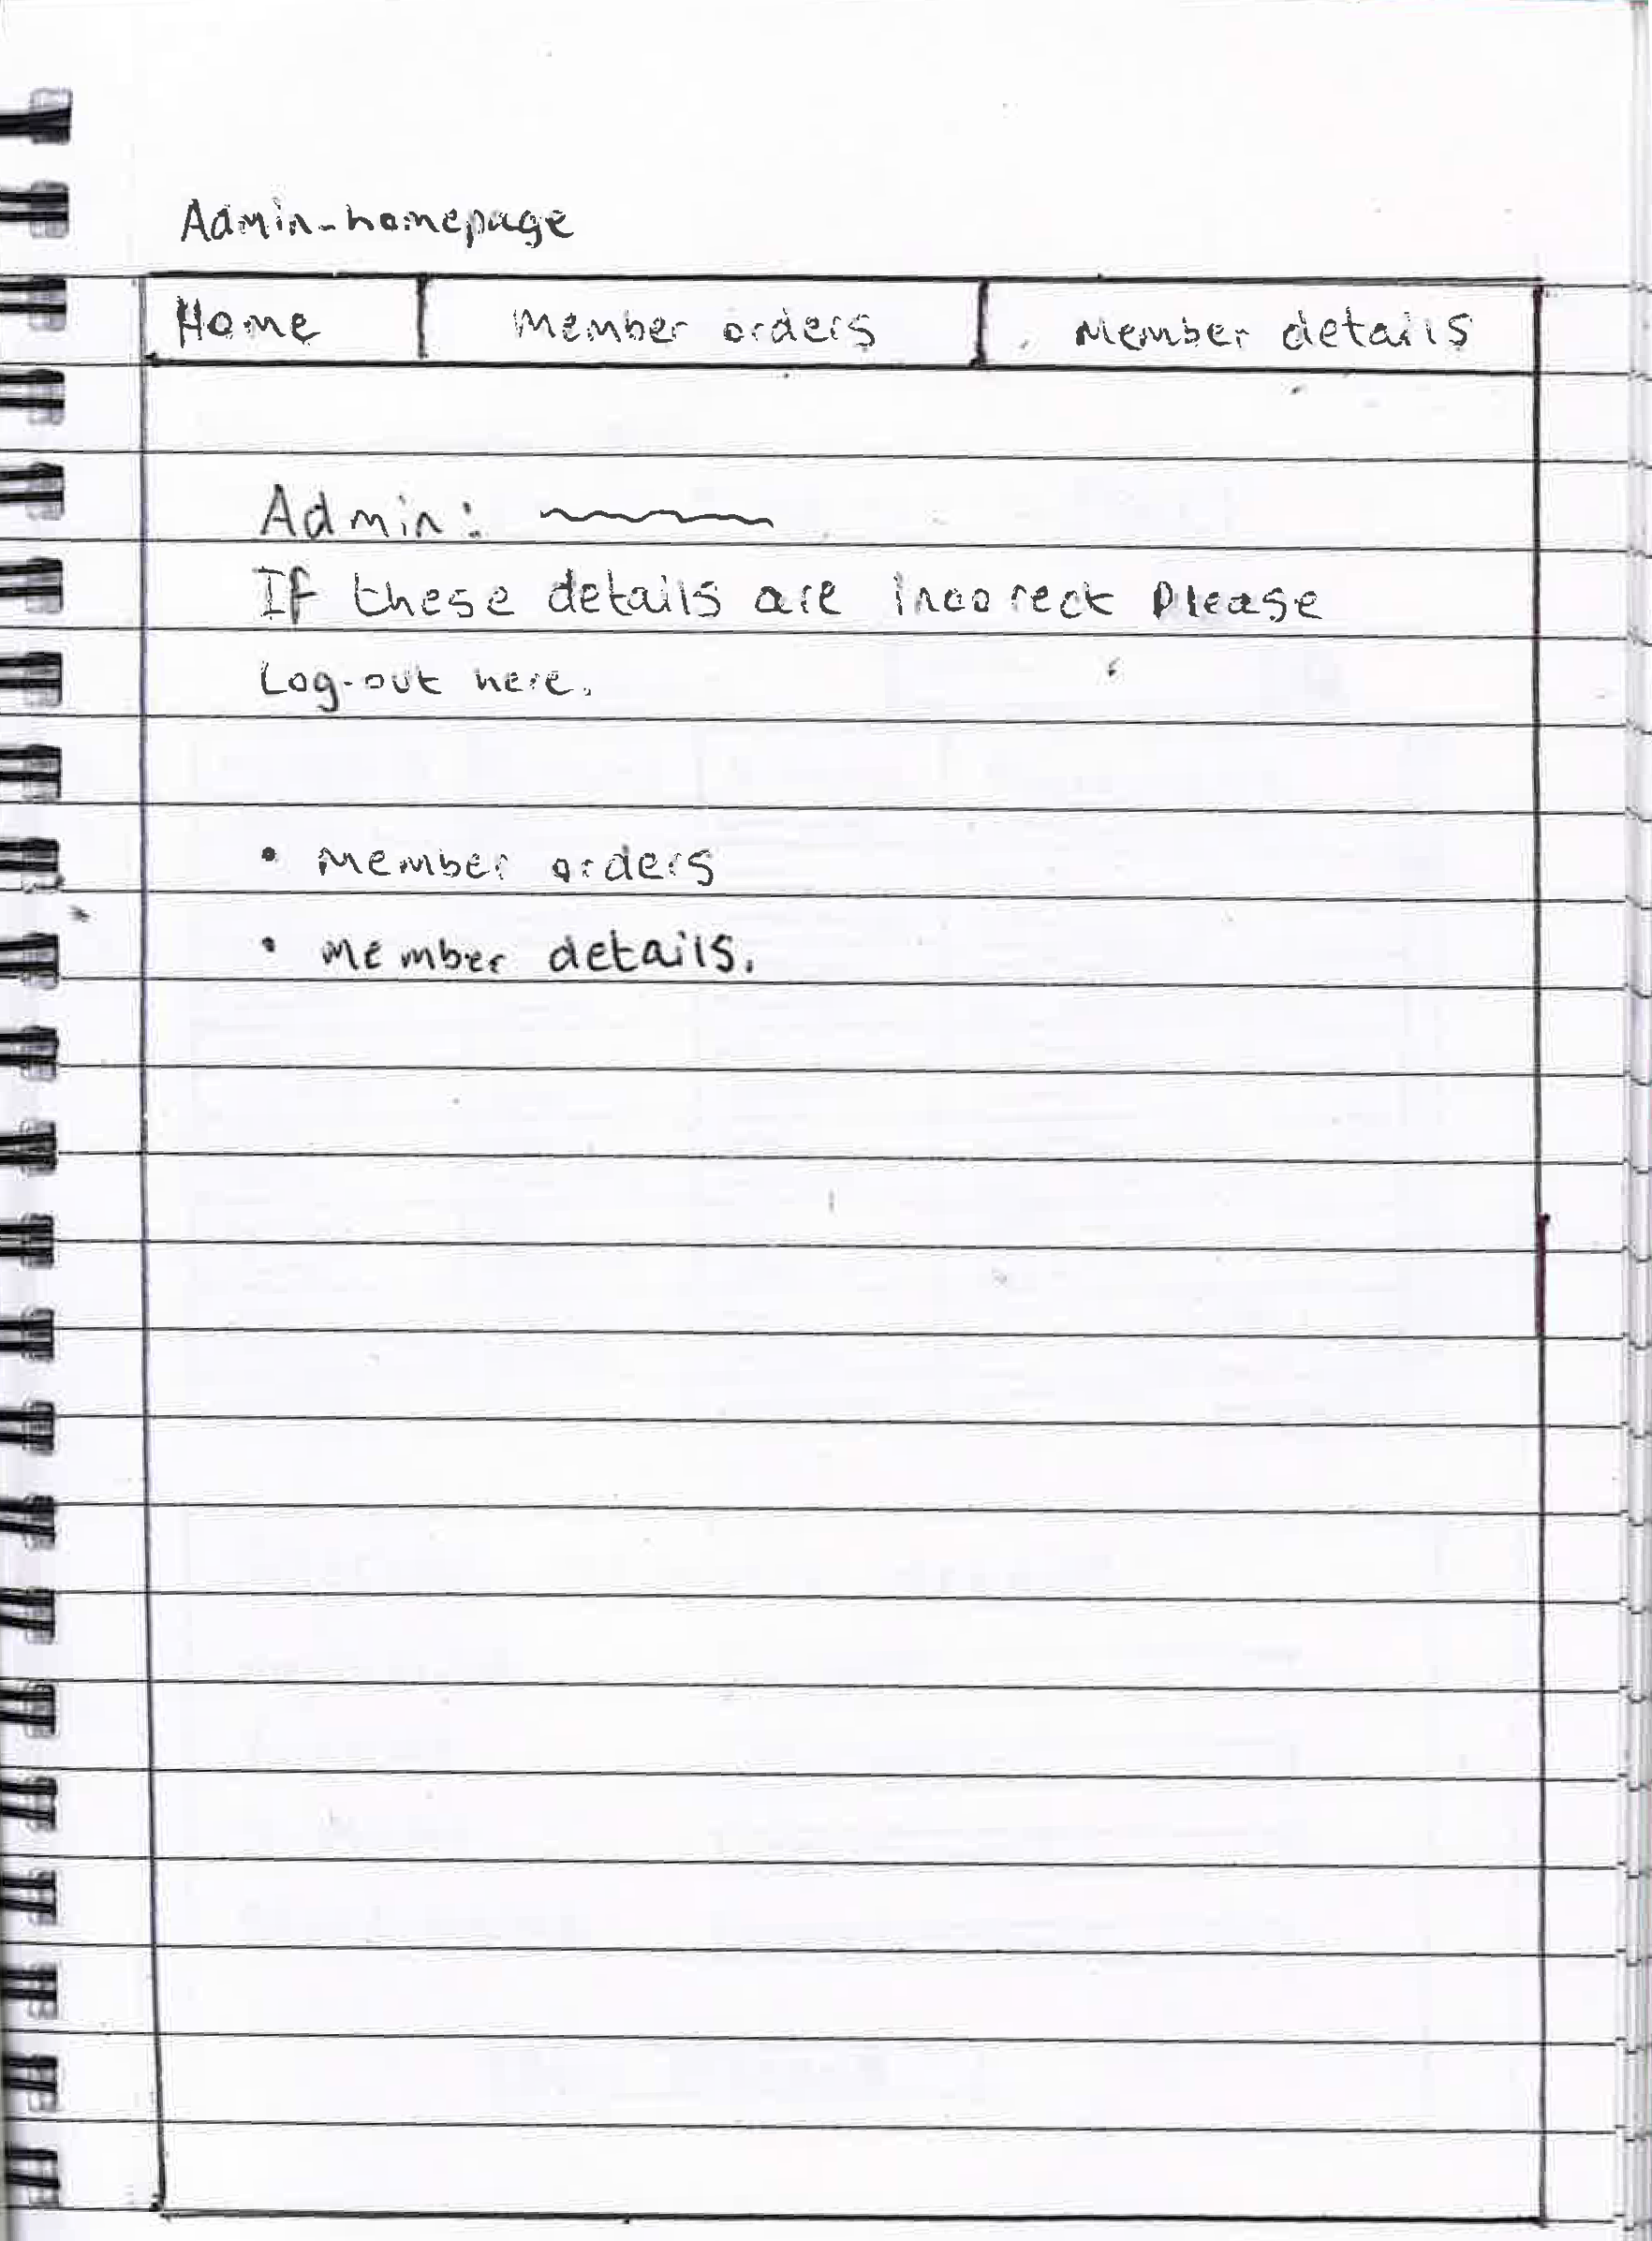 Admin-homepage
Home Member orders Member details
Admin:
If these details are incoreck Please
Log-out here.
• Member orders
• Member details.